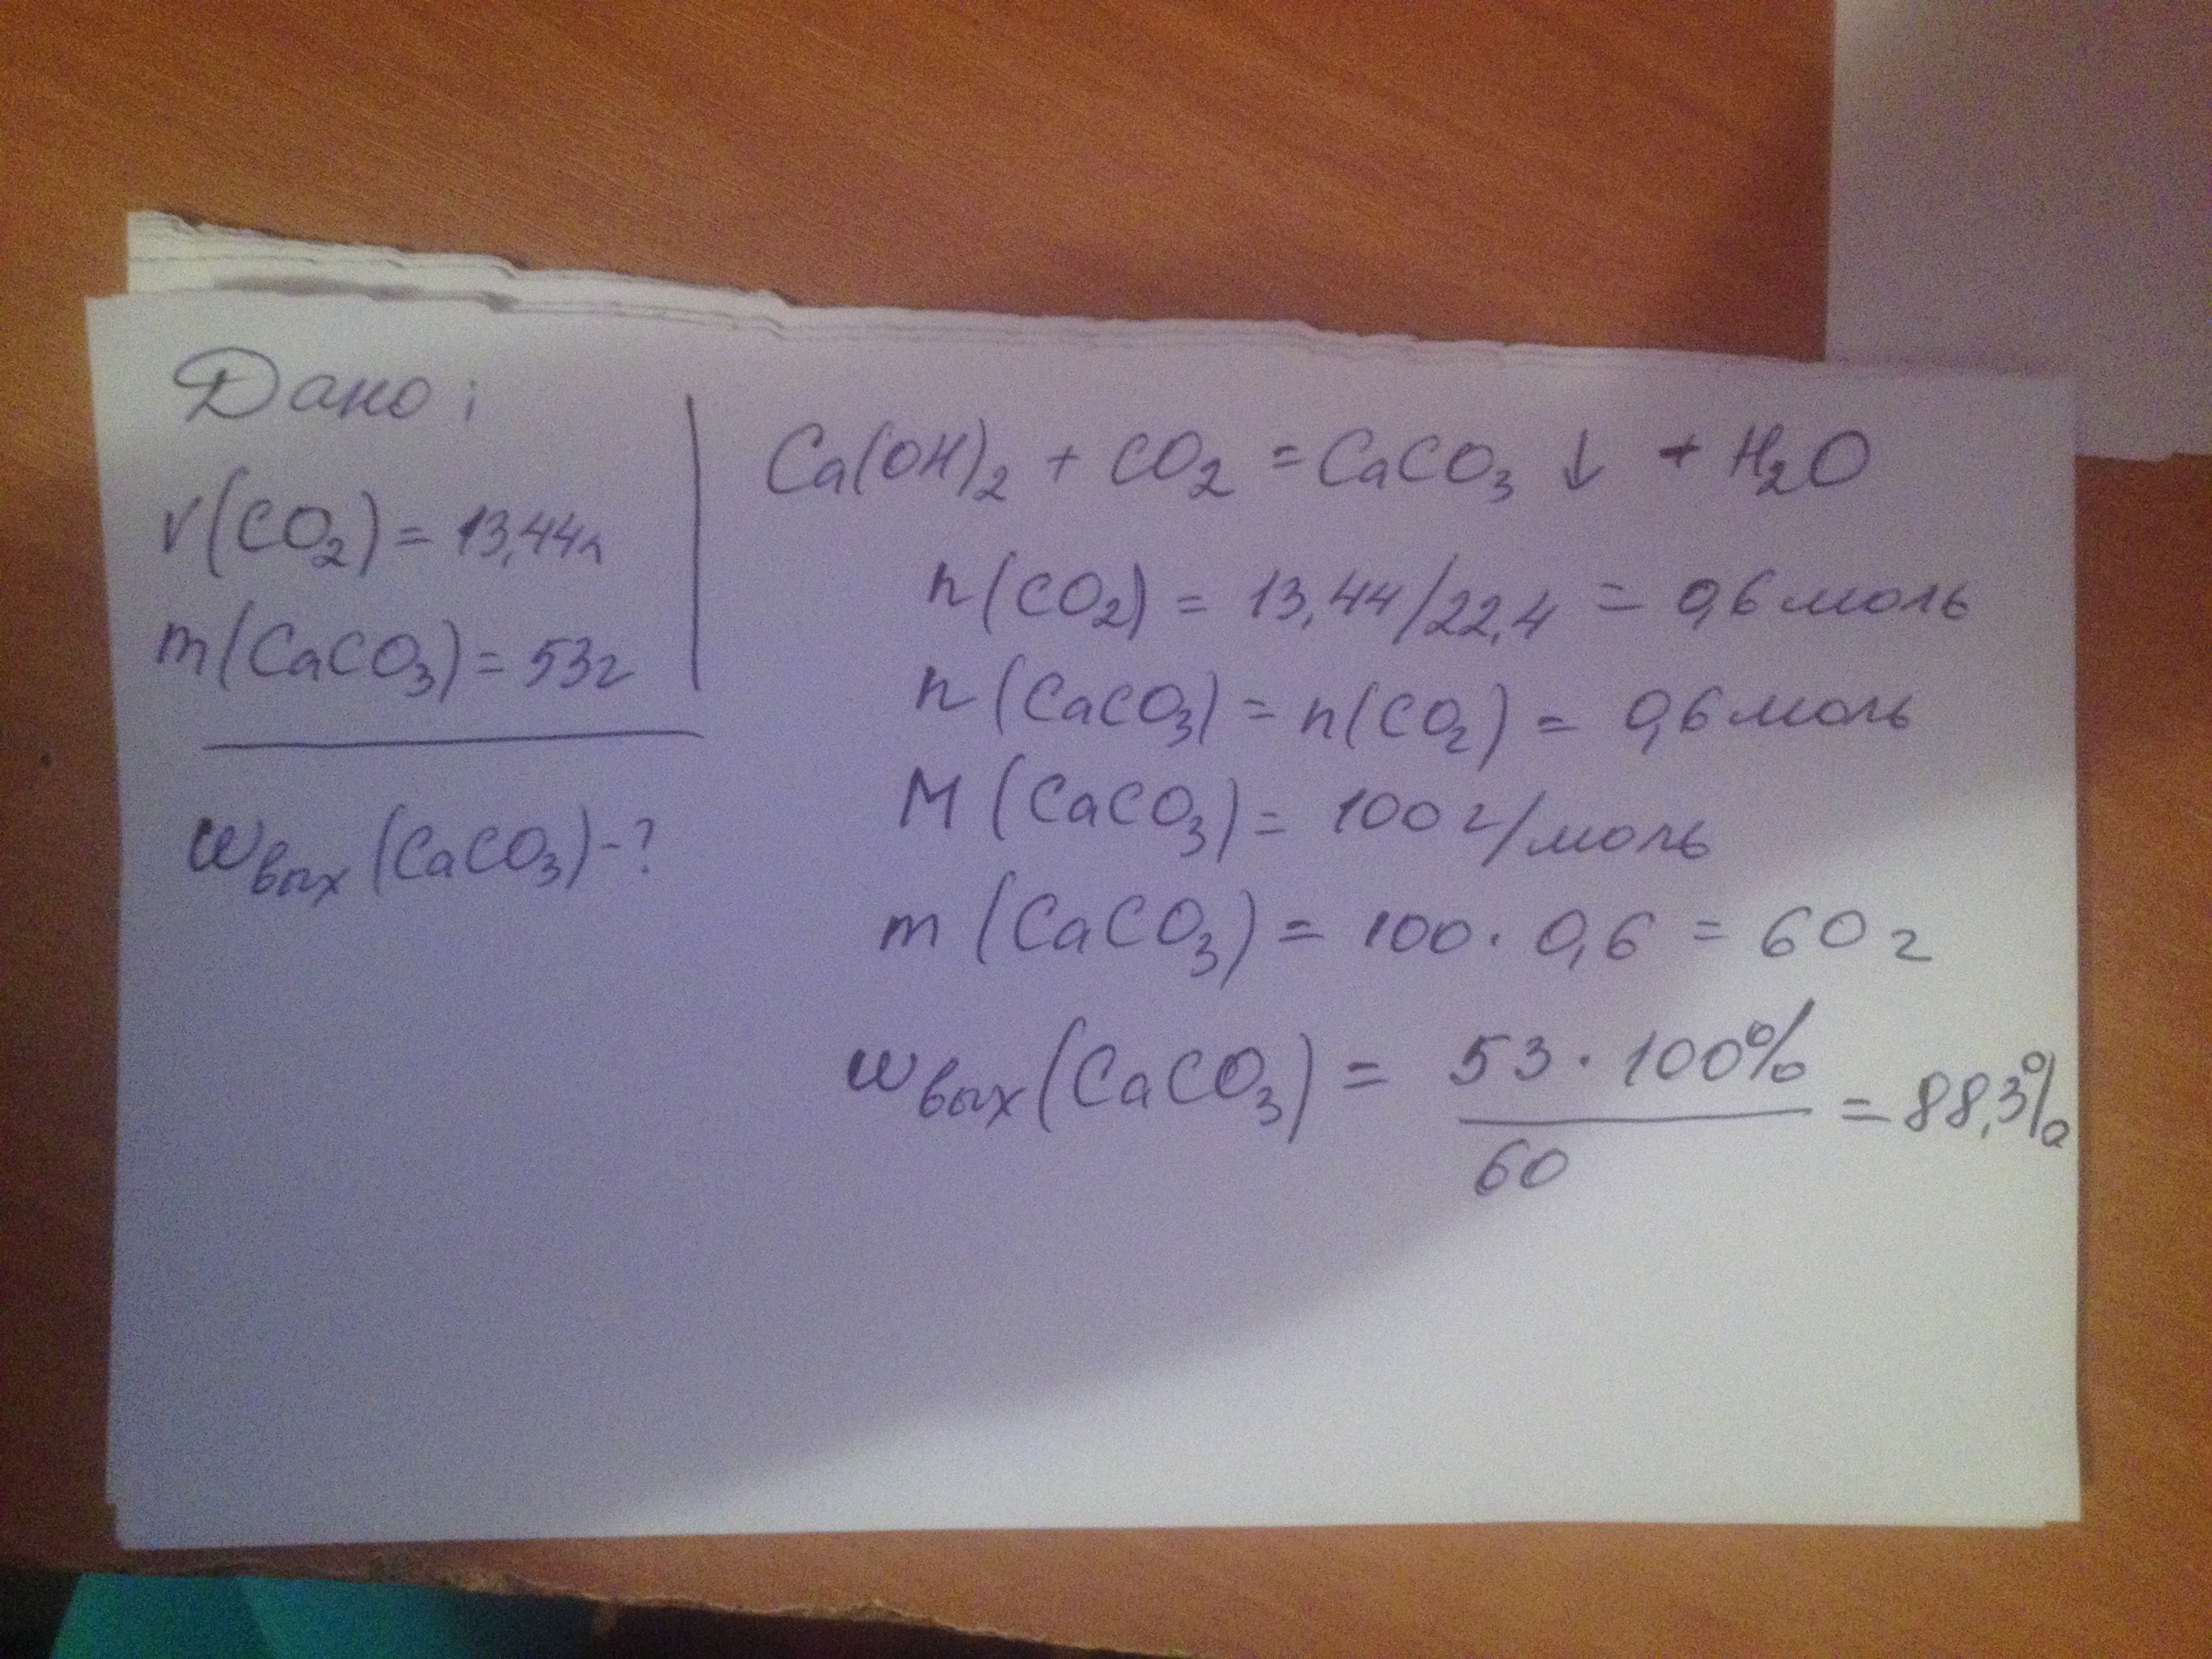 Дано:
V(CO₂) = 13,44л
m(CaCO₃) = 53г
wвых(CaCO₃) - ?
Ca(OH)₂ + CO₂ = CaCO₃ ↓ + H₂O
n(CO₂) = 13,44/22,4 = 0,6 моль
n(CaCO₃) = n(CO₂) = 0,6 моль
M(CaCO₃) = 100 г/моль
m(CaCO₃) = 100 · 0,6 = 60 г
wвых(CaCO₃) = 53 · 100% / 60 = 88,3%